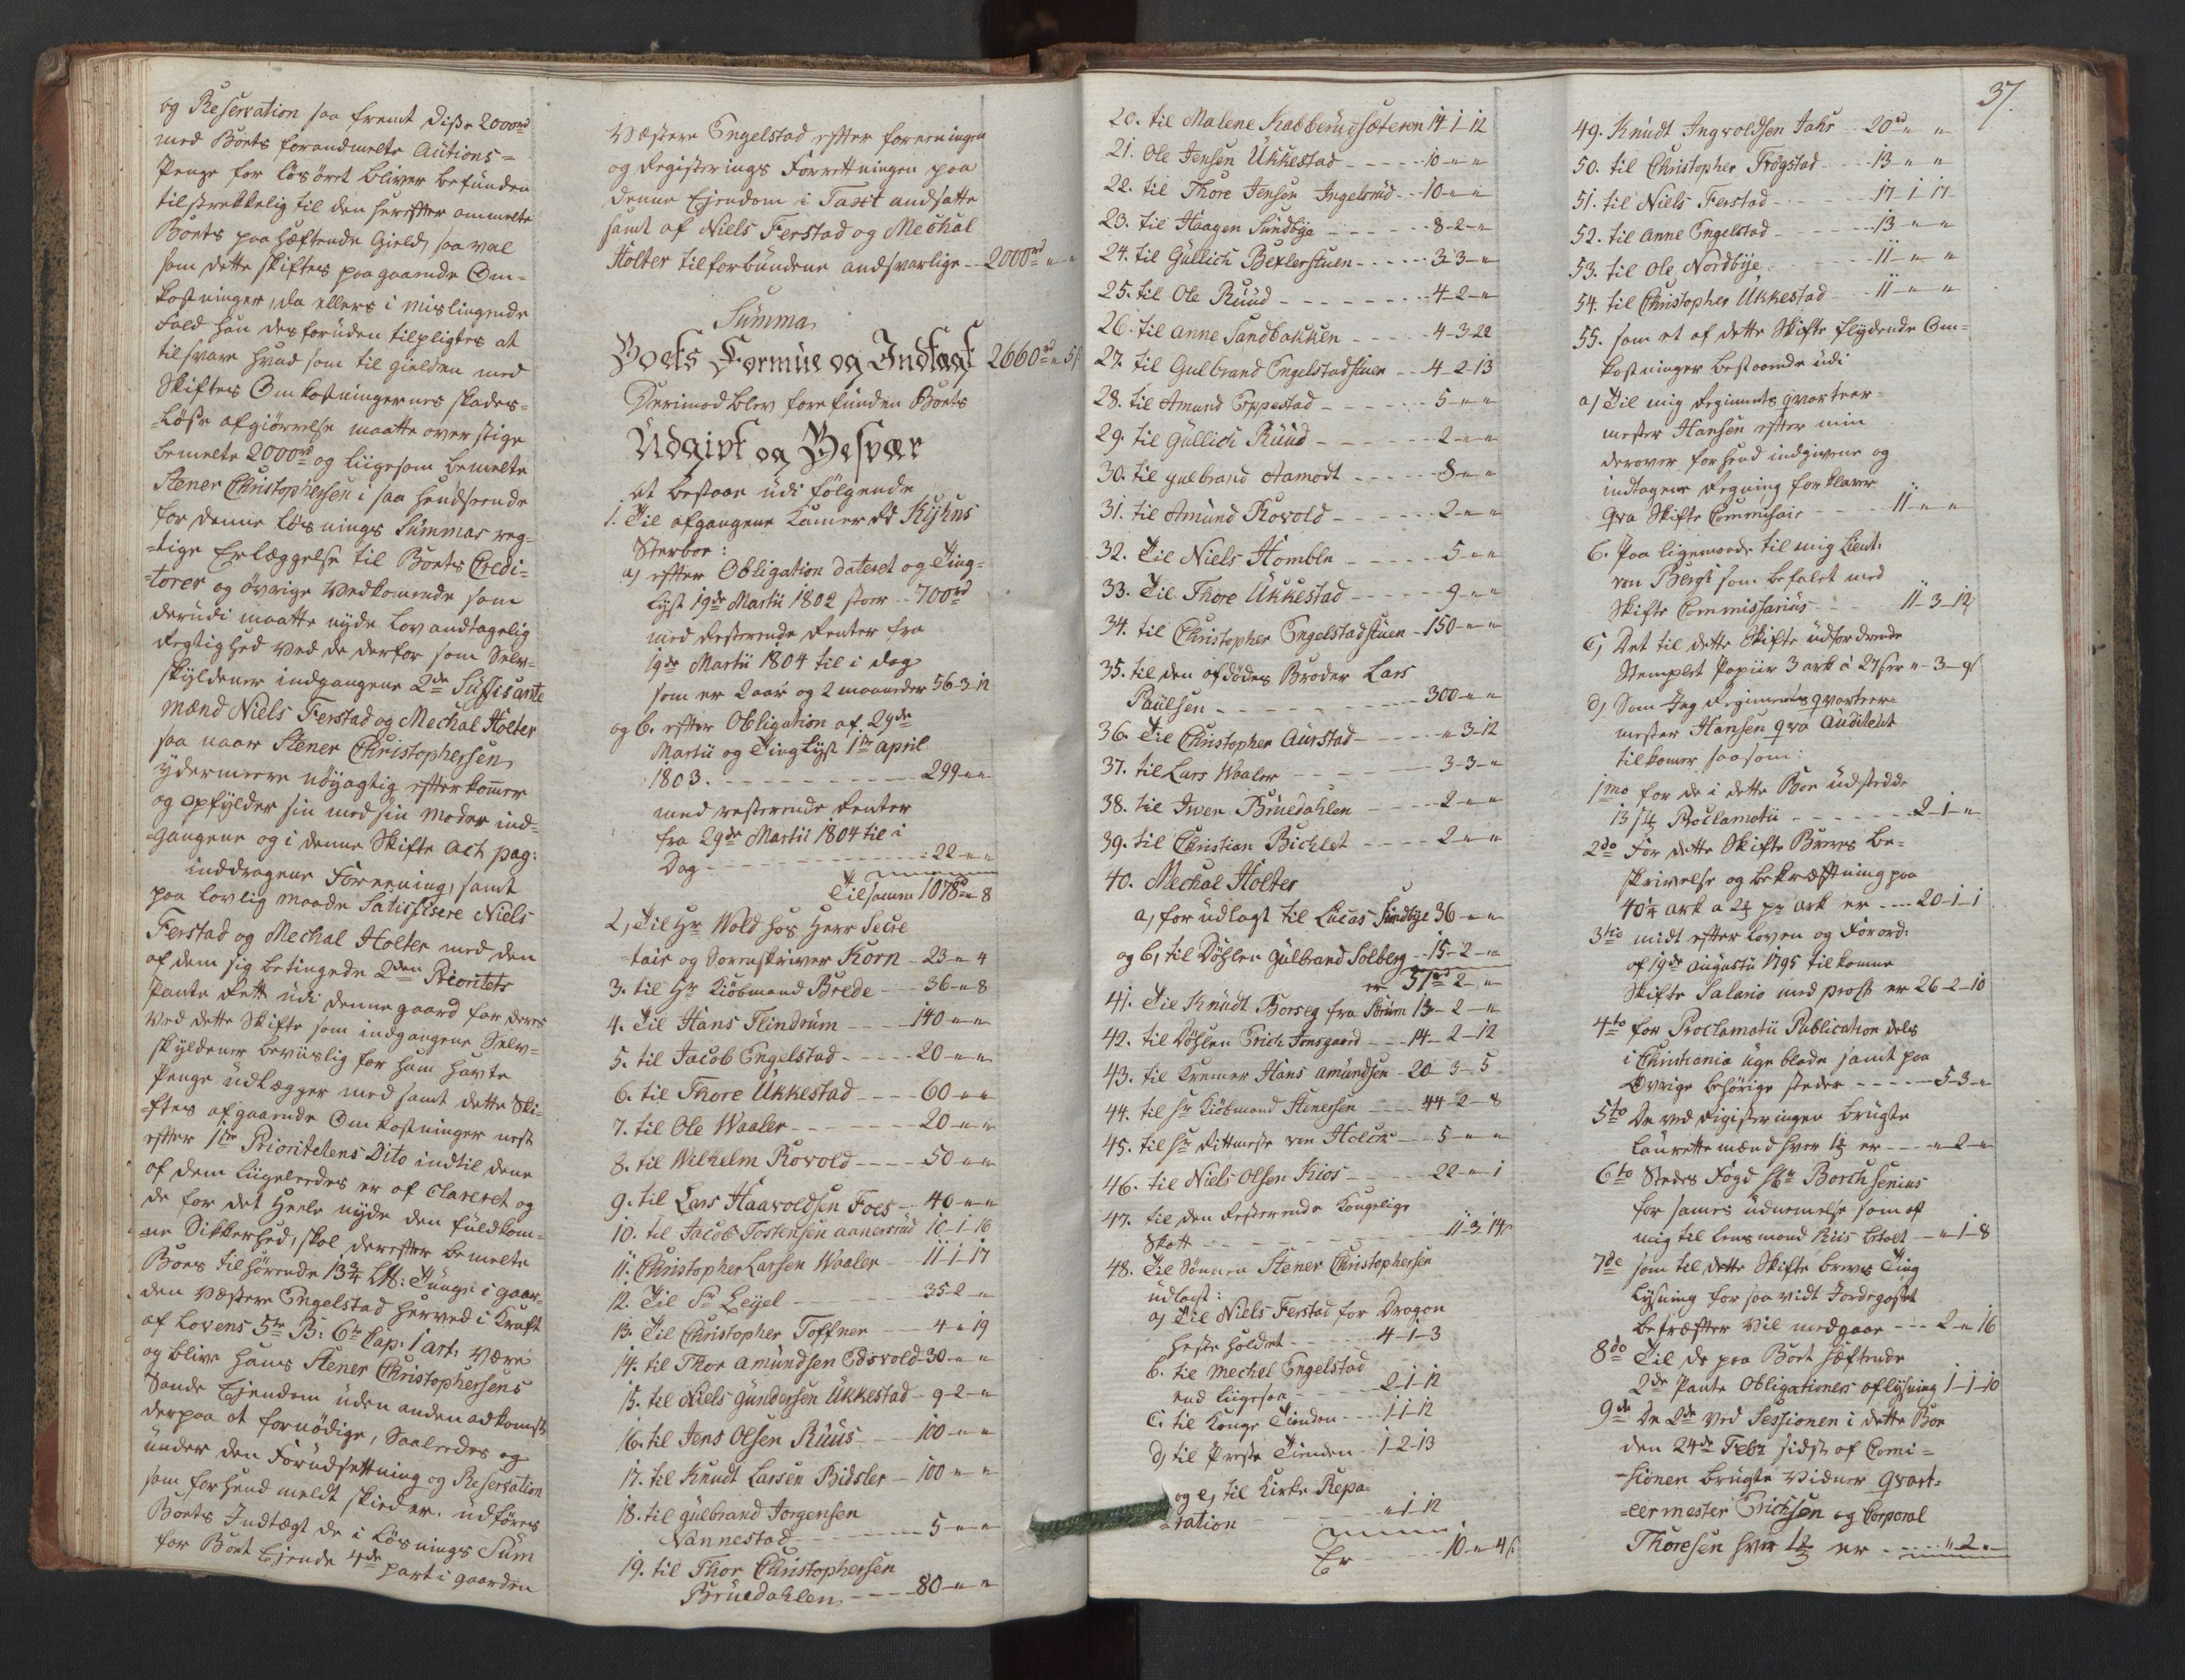 og Reservation saa fremt disse 2000rd
med Boets forandmelte Auctions=
Penge for løsøret bliver befunden
tilstrekkelig til den herefter ommelte
Boets paa hæftende Gield, saa vel
som dette skiftes paagaaende Om=
kostninger, da ellers i mislingende
Fald han des foruden tilpligtes at
tilsvare hvad som til gielden med
Skiftes Omkostningernes skades=
=løse afgiørelse maatte overstige
bemelte 2000rd og liigesom bemelte
Stener Christophersen i saa henseende
for denne løsnings Summas rig=
=tige Erlæggelse til Boets Credi=
=torer og øvrige Vedkomende som
derudi maatte nyde Lov andtagelig
Rigtighed ved de derfor som Selv=
skyldener indgangene 2de Suffisante
Mænd Niels Ferstad og Mechal Holter
saa naar Stener Christophersen
ydermeere nøyagtig efterkommer
og opfylder sin med sin Moder ind=
=gangene og i denne Skifte Act pag:
inddragene Foreening, samt
paa lovlig maade Satisfisere Niels
Ferstad og Mechal Holter med den
af dem sig betingede 2den Prioritets
Pante Rett udi denne gaard for deres
ved dette Skifte som indgangene Selv=
skyldener beviislig for ham havte
Penge udlægger med samt dette Ski=
=ftes afgaaende Omkostninger nest
efter 1ste Prioritetens Dito indtil dene
af dem liigeledes er af Clareret og
de for det Heele nyde den fuldkom=
=ne Sikkerhed, skal derefter bemelte
Boes tilhørende 13¾ L℔: Tunge i gaar=
den Væstere Engelstad herved i Kraft
af Lovens 5te B: 6te Cap: 1 art: være
og blive hans Stener Christophersens
Sande Ejendom uden anden adkomst
derpaa at fornødige, Saaledes og
under den Forudsettning og Reservation
som forhend meldt skieder. udføres
Boets Indtægt de i Løsnings Sum
for Boet Ejende 4de part i gaarden
Væstere Engelstad efter foreeningen
og Registerings Forrettningen paa
denne Ejendom i Taxt andsatte
samt af Niels Ferstad og Mechal
Holter tilforbundene andsvarlige 2000rd " "
Summa
Boets Formue og Indtægt 2660rd " 5s
Derimod blev forefunden Boets
Udgivt og Besvær
at bestaae udi følgende
1. Til afgangene Kamer Rd Kyhns
Sterboe:
a) efter Obligation dateret og Ting=
lyst 19de Martii 1802 stor 700rd
med Resterende Renter fra
19de Martii 1804 til i dag
som er 2 aar og 2 maaneder 56-3-12
og b. efter Obligation af 29de
Martii og Tinglyst 1ste april
1803. 299 - " - "
med resterende Renter
fra 29de Martii 1804 til i
Dag 22 - " - "
Tilsamen 1078rd " 8
2, Til Hr Wold hos Herr Secre
=tair og Sorenskriver Korn 23 - " 4
3. til Hr Kiøbmand Brede 36 - " 8
4. Til Hans Flindrum 140 - " "
5. til Jacob Engelstad 20 - " - "
6. til Thore Ukkestad 60 - " "
7. til Ole Waaler 20 - " - "
8. til Wilhelm Rovold 50 - " "
9. til Lars Haavoldsen Foes 40 - " - "
10. til Jacob Tostensen aanerud 10-1-16
11. Christopher Larsen Waaler 11-1-17
12. Til Sr Leyel 35-2- "
13. Til Christopher Toffner 4 - " 19
14. til Thor Amundsen Edsvold 30 - " "
15. til Niels Gundersen Ukkestad 9-2- "
16. til Jens Olsen Ruus 100 - " "
17. til Knudt Larsen Bidsler 100 - " "
18. til gulbrand Jorgensen
Nannestad 5 - " - "
19. til Thor Christophersen
Bruedahlen 80 - " "
20. til Malene Kabberudsæteren 14-1-12
21. Ole Jensen Ukkestad 10 - " "
22. til Thore Jensen Ingelsrud 10 - " "
23. til Haagen Sundbye 8-2- "
24. til Gullich Bexlerstuen 3-3- "
25. til Ole Ruud 4-2- "
26. til Anne Sandbakken 4-3-22
27. til Gulbrand Engelstadstuen 4-2-13
28. til Amund Eppestad 5 - " "
29. til Gullich Ruud 2 - " "
30. til gulbrand Aamodt 8 - " "
31. til Amund Rovold 2 - " "
32. Til Niels Homble 5 - " "
33. Til Thore Ukkestad 9 - " "
34. til Christopher Engelstadstuen 150 - " "
35. til den afdødes Broder Lars
Paulsen 300 - " "
36. Til Christopher Aurstad " 3-12
37. til Lars Waaler 3-3- "
38. til Iver Bruedahlen 2 - " "
39. til Christian Bichlet 2 - " "
40. Mechal Holter
a, for udlagt til Lucas Sundbye 36 - " "
og b, til Døhlen Gulbrand Solberg 15-2- "
er 51rd 2- "
41. Til Knudt Borseg fra Sørum 13-2- "
42. til Døhlen Erich Jonsgaard 14-2-12
43. til Kremer Hans Amundsen 20-3-5
44. til Hr Kiøbmand Stenersen 44-2-8
45. til Hr Rittmester von Holck 5 - " "
46. til Niels Olsen Kios 22 - " 1
47. til den Resterende Kongelige
Skatt 11-3-14
48. Til Sønnen Stener Christophersen
udlagt:
a) Til Niels Ferstad for Dragon
Heste holdet 4-1-3
b. til Mechel Engelstad
end liigesaa 2-1-12
c. til Konge Tienden 1-1-12
d, til Preste Tienden 1-2-13
og e, til Kirke Repa=
=ration " 1-12
Er 10 - " 4s
37.
49. Knudt Ingvoldsen Jahr 20rd " "
50. til Christopher Trøgstad 13 - " "
51. til Niels Ferstad 17-1-17
52. til Anne Engelstad 13 - " "
53. til Ole Nordbye 11 - " "
54. til Christopher Ukkestad 11 - " "
55. som et af dette Skifte flydende Om=
kostninger bestaaende udi
a) Til mig Regiments qvarteer=
mester Hansen efter min
derover forhend indgivene og
indtagene Regning forklarer
qva Skifte Commissair 11 - " "
b. Paa ligemaade til mig Lieut:
von Bergh som befalet med
Skifte Commissarius 11-3-12
c, Det til dette Skifte udfordrende
Stemplet Papiir 3 ark à 27s er " 3-9
d, Som Jag Regiments qvarteer=
mester Hansen qva Auditeur
tilkomer saasom:
1mo for de i dette Boe udstedde
13 Proclamata 2-1- "
2do For dette Skifte Breves be=
skrivelse og bekræftning paa
40¼ ark a 2 pr ark er 20-1-1
3tio midt efter loven og Forord:
af 19de Augustii 1795 tilkomne
Skifte Salario med prost er 26-2-10
4to for Proclamatii Publication dels
i Christiania Uge blade samt paa
øvrige behørige steder 5-3- "
5to De ved Registeringen brugte
Laurettemænd hver 1 er " 2- "
6to Stedes Foged Hr Borchsenius
for sames udnemelse som af
mig til lensmand Riis betalt " 1-8
7de som til dette Skifte brevs Ting
Lysning for saavidt Jordegodset
betræffer vil medgaae 2 - " 16
8do Til de paa Boet hæftende
2de Pante Obligationers aflysning 1-1-10
9de De 2de ved Sessionen i dette Boe
den 24de Febr sidst af Comi=
=sionen brugte Vidner Qvart=
=eermester Erichsen og Corporal
Thoresen hver 1 er " 2 - "